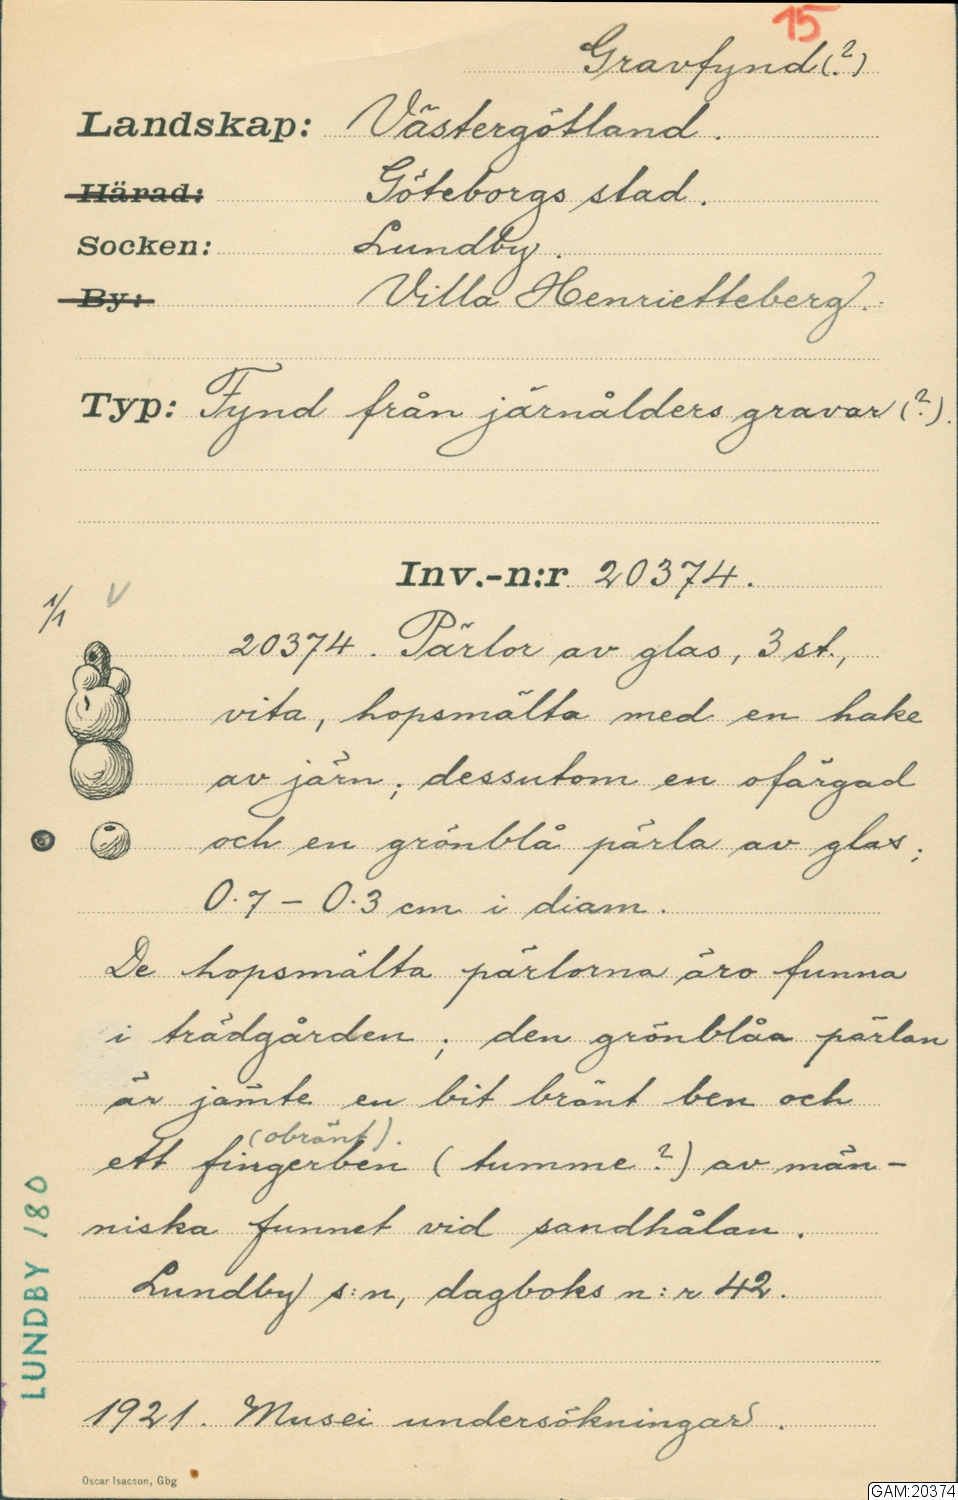 15
Gravfynd(?)
Landskap: Västergötland.
Härad: Göteborgs stad.
Socken: Lundby.
By: Villa Henrietteberg.
Typ: Fynd från järnålders gravar (?).
Inv.-n:r 20374.
1/1 V
20374. Pärlor av glas, 3 st.,
vita, hopsmälta med en hake
av järn; dessutom en ofärgad
och en grönblå pärla av glas;
0.7 – 0.3 cm i diam.
De hopsmälta pärlorna äro funna
i trädgården; den grönblåa pärlan
är jämte en bit bränt ben och
(obränt).
ett fingerben (tumme?) av män-
niska funnet vid sandhålan.
Lundby s:n, dagboks n:r 42.
LUNDBY 180
1921. Musei undersökningar.
Oscar Isacson, Gbg
GAM:20374